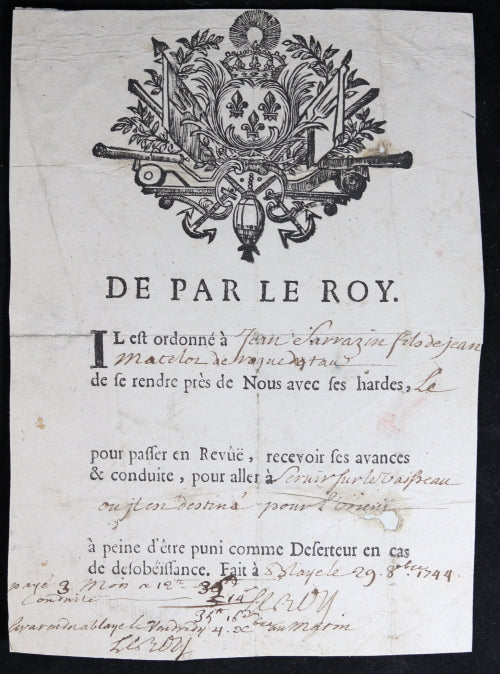 DE PAR LE ROY.
IL est ordonné à Jean Sarrazin fils de jean
Matelot de
de se rendre près de Nous avec ses hardes, Le
pour passer en Revûë, recevoir ses avances
& conduite, pour aller à Servir sur le Vaisseau
ou il en destiné pour l'orient
à peine d'être puni comme Deserteur en cas
de desobeïssance. Fait à Blaye le 29. 8bre 1744.
payé 3 Mois a 12tt 36tt
Conduite
LEROY
a blaye le Vendredy 4. au matin
LEROY